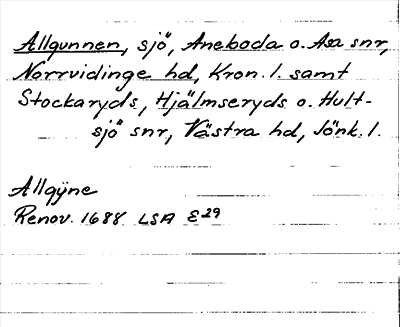 Allgunnen, sjö, Aneboda o. Asa snr,
Norrvidinge hd, Kron. l. samt
Stockaryds, Hjälmseryds o. Hult-
sjö snr, Västra hd, Jönk. l.
Allgÿne
Renov. 1688 LSA E29